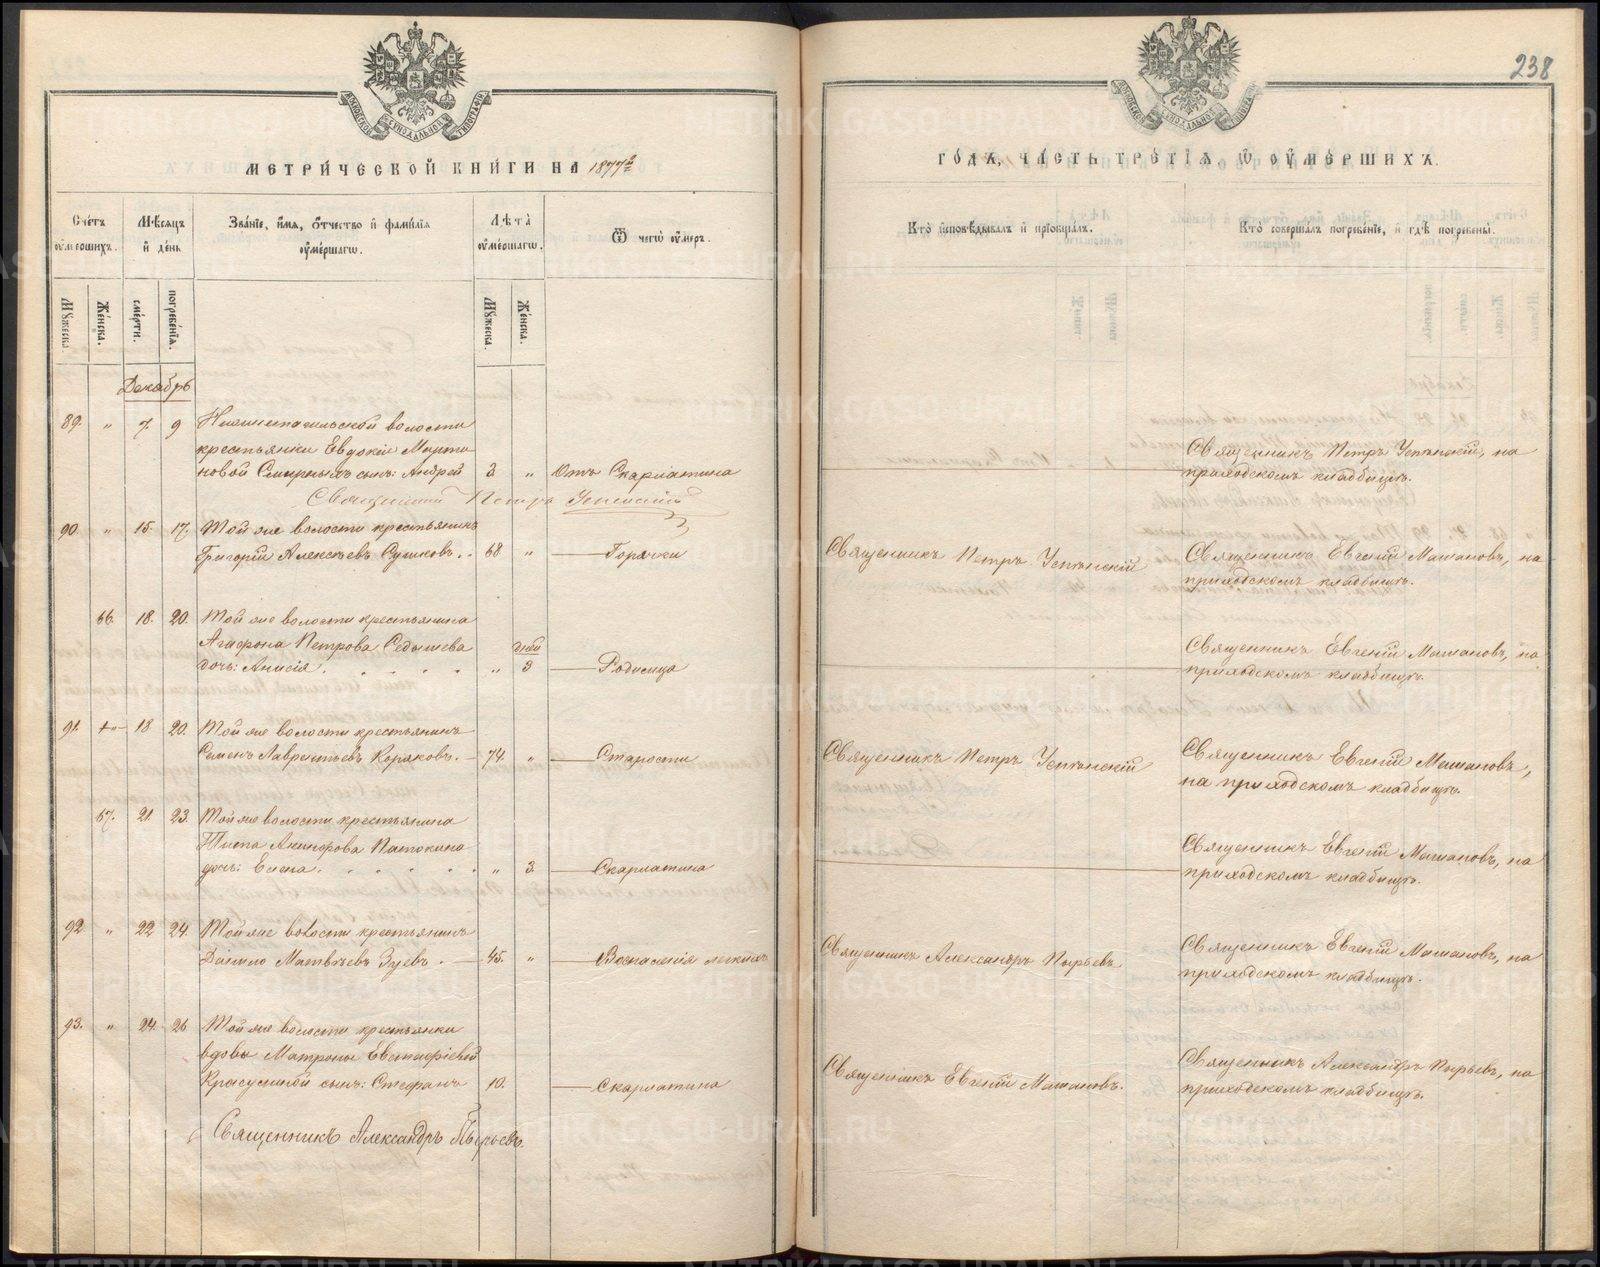 238
МЕТРИ́ЧЕСКОЙ КНИ́ГИ НА 1877 г
ГО́ДЪ, ЧА́СТЬ ТРЕ́ТІЯ, Ѿ ОУМЕ́РШИХЪ.
Сче́тъ оуме́ршихъ.
Мѣ́сяцъ и де́нь
Зва́нїе, и́мя, о́тчество и фами́лїя оуме́ршагѡ.
Лѣта̀ оуме́ршагѡ.
Ѿ чегѡ̀ оу́меръ.
Кто̀ исповѣ́дывалъ и прїобща́лъ.
Кто̀ соверша́лъ погребе́нїе, и гдѣ̀ погребены̀.
Мꙋ́жеска.
Же́нска.
сме́рти.
погребе́нїя.
Мꙋ́жеска.
Же́нска.
Декабрь
89. „ 7. 9 Нижнетагильской волости
крестьянки Евдокіи Марти
новой Смирныхъ сынъ: Андрей 3 „ Отъ Скарлатина
Священникъ Петръ Успенскій, на
приходскомъ кладбищѣ.
Священникъ Петръ Успенскій
90. „ 15. 17. Той же волости крестьянинъ
Григорій Алексѣевъ Сушковъ. 68 „ Горячки
Священникъ Петръ Успенскій
Священникъ Евгеній Машановъ, на
приходскомъ кладбищѣ.
66. 18. 20. Той же волости крестьянина
Агафона Петрова Седышева дней
дочь: Анисія „ 3 Родимца
Священникъ Евгеній Машановъ, на
приходскомъ кладбищѣ.
91. 18 20. Той же волости крестьянинъ
Семенъ Лаврентьевъ Коряковъ. 74. „ Старости
Священникъ Петръ Успенскій
Священникъ Евгеній Машановъ,
на приходскомъ кладбищѣ.
67. 21. 23. Той же волости крестьянина
Тита Никифорова Патокина
дочь: Елена. „ 3. Скарлатина
Священникъ Евгеній Машановъ, на
приходскомъ кладбищѣ.
92 „ 22 24. Той же волости крестьянинъ
Данило Матвѣевъ Зуевъ. 45. „ Воспаленія легкихъ
Священникъ Александръ Пырьевъ
Священникъ Евгеній Машановъ, на
приходскомъ кладбищѣ.
93. „ 24. 26 Той же волости крестьянки
вдовы Матроны Евстафіевой
Красулиной сынъ: Стефанъ 10. Скарлатина
Священникъ Евгеній Машановъ.
Священникъ Александръ Пырьевъ, на
приходскомъ кладбищѣ.
Священникъ Александръ Пырьевъ.
METRIKI.GASO-URAL.RU